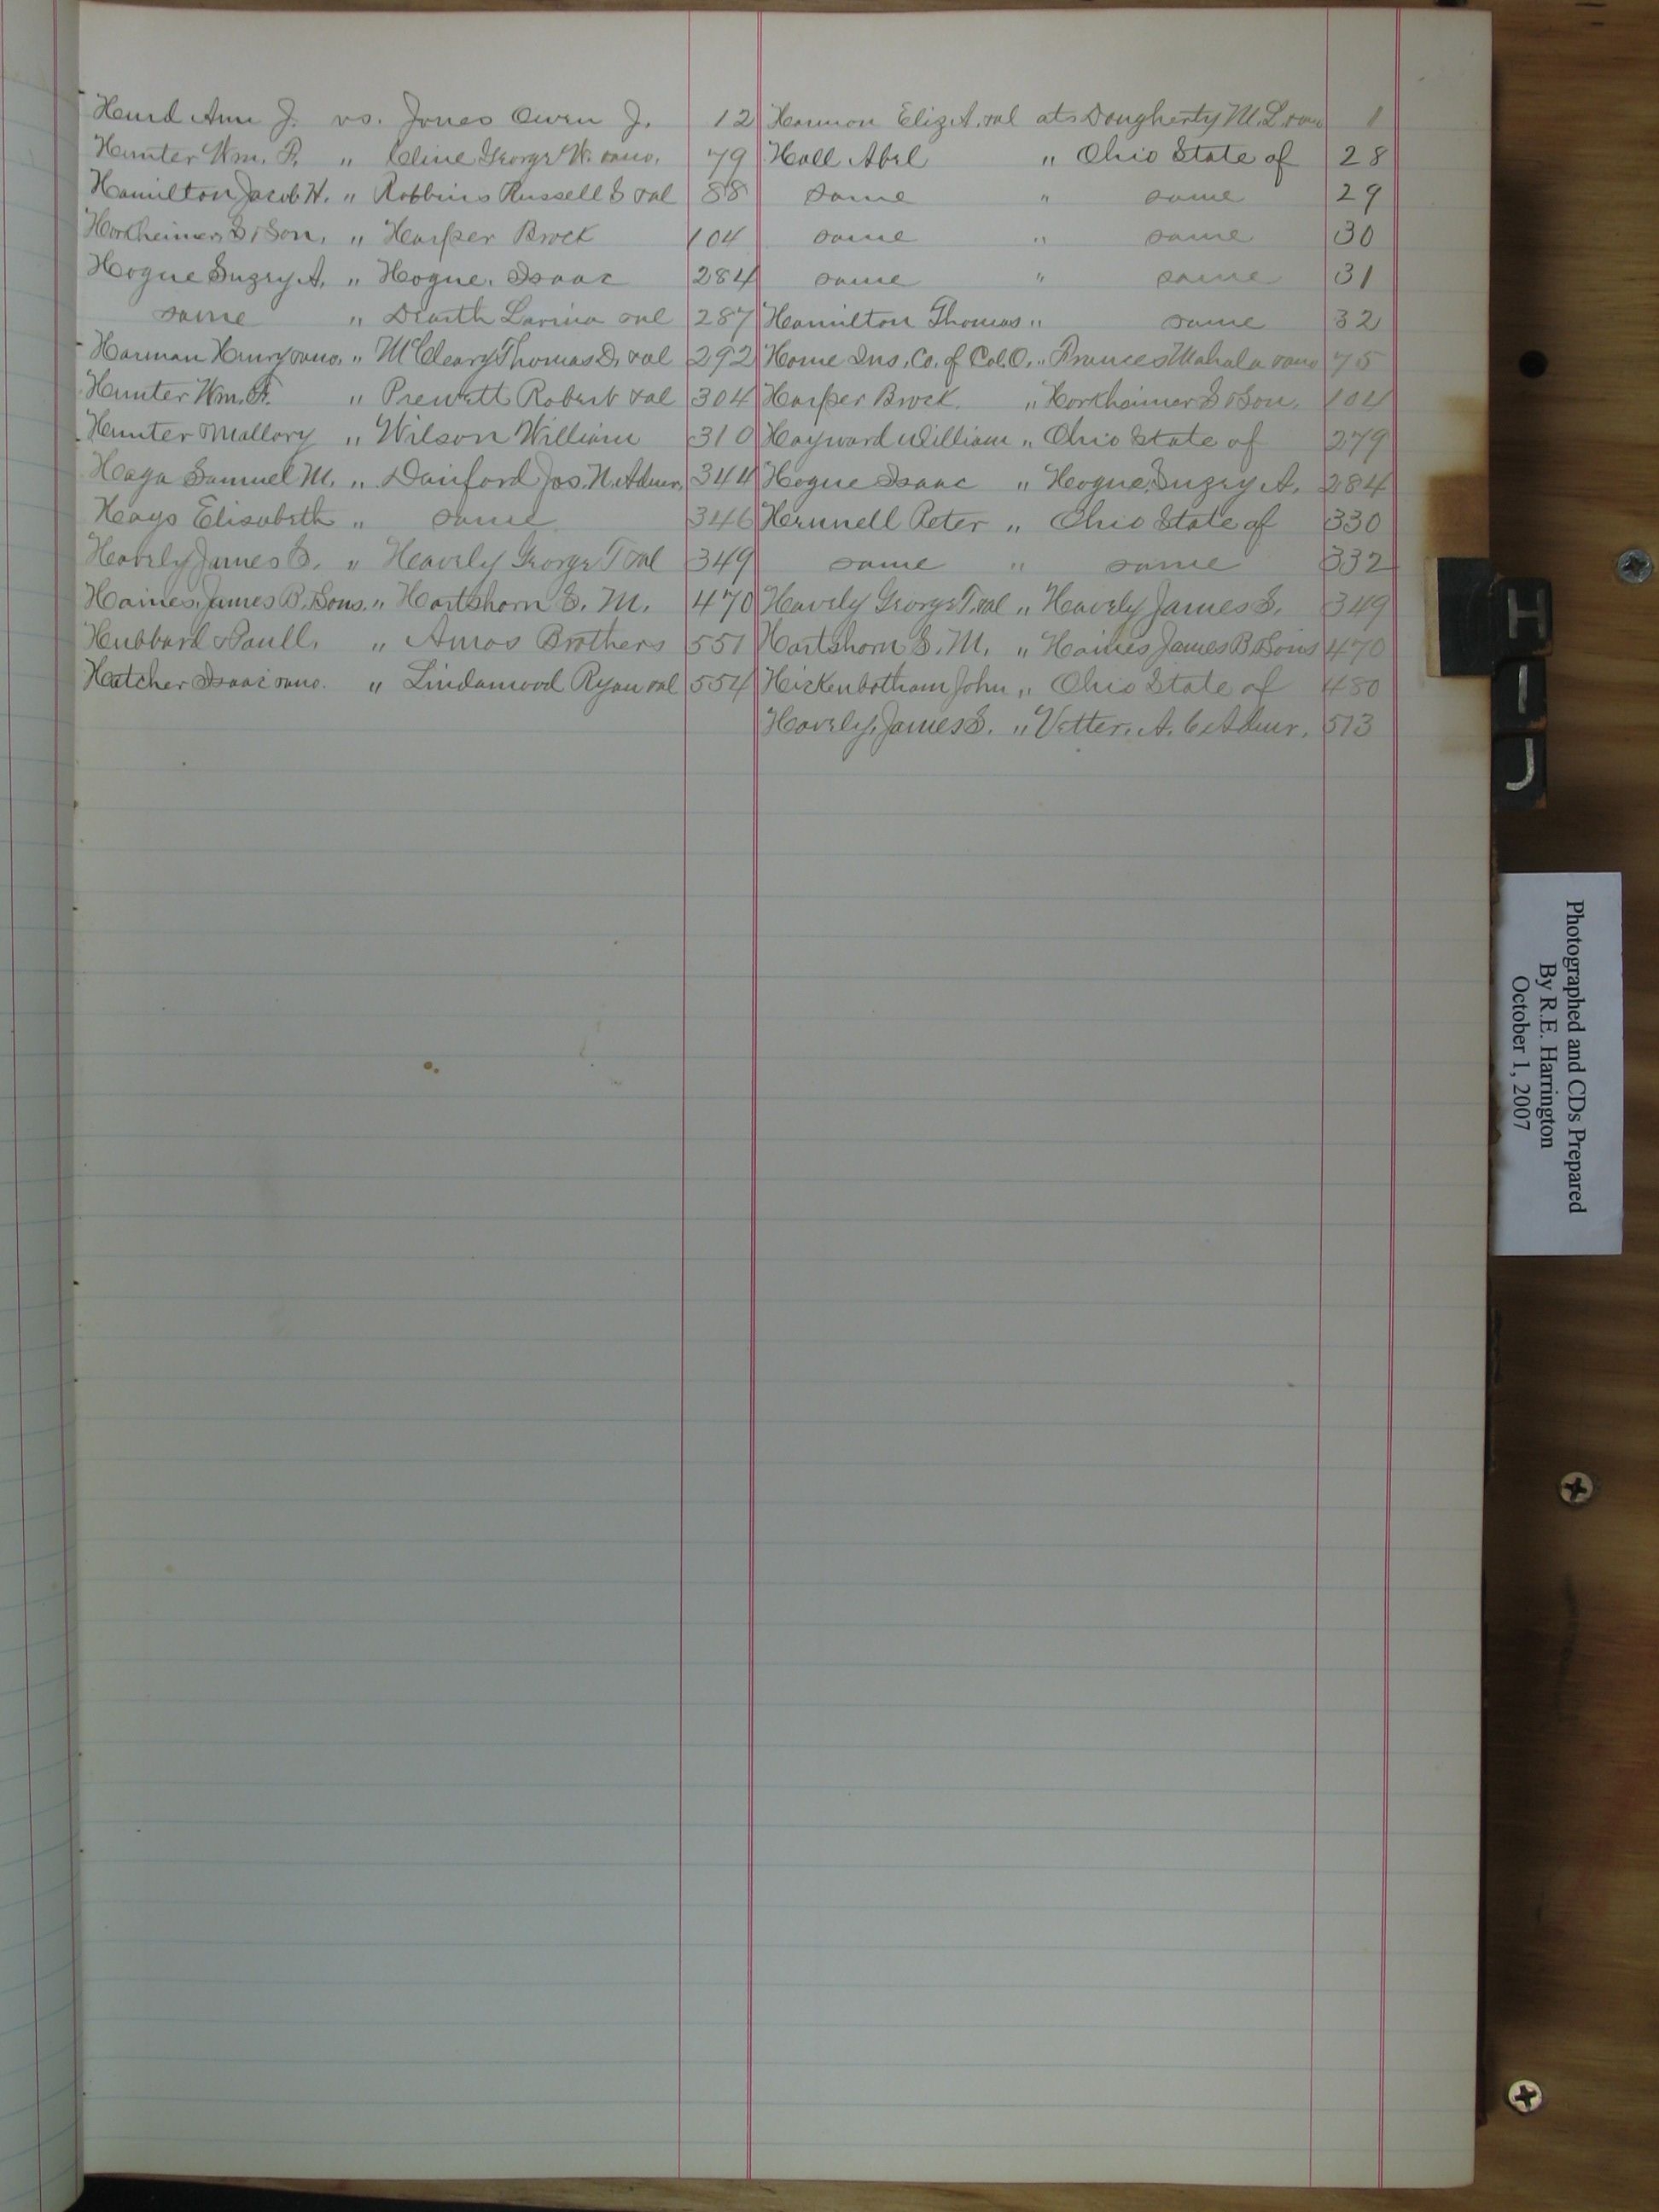 Hurd Ann J. vs. Jones Owen J. 12
Hunter Wm. F. " Cline George W. 79
Hamilton Jacob H. " Robbins Russell S &al 88
Horkheimer S & Son. " Harper Brock 104
Hogue Suzzy A. " Hogue, Isaac 284
same " Dearth Lavina &al 287
Harman Henry " McCleary Thomas D. &al 292
Hunter Wm. F. " Prewett Robert &al 304
Hunter Mallory " Wilson William 310
Samuel M. " Danford Jos. N. Admr. 344
Hays Elisabeth " same 346
Heavely James S. " Heavely George T &al 349
Haines, James B. &Sons. " Hartshorn S. M. 470
Hubbard & Paull. " Amos Brothers 551
Hatcher Isaac " Lindamood Ryan &al 554
Harmon Eliz. A. &al ats Dougherty M. L. 1
Hall Abel " Ohio State of 28
same " same 29
same " same 30
same " same 31
Hamilton Thomas " same 32
Home Ins. Co. of Col. O. " Frances Mahala 75
Harper Brock. " Horkheimer S & Son. 104
Hayward William " Ohio State of 279
Hogue Isaac " Hogue, Suzzy A. 284
Peter " Ohio State of 330
same " same 332
Heavely George T. &al " Heavely James S. 349
Hartshorn S. M. " Haines James B &Sons 470
Hickenbotham John " Ohio State of 480
Heavely, James S. " Vetter, A. C Admr. 513
H
I
J
Photographed and CDs Prepared
By R.E. Harrington
October 1, 2007